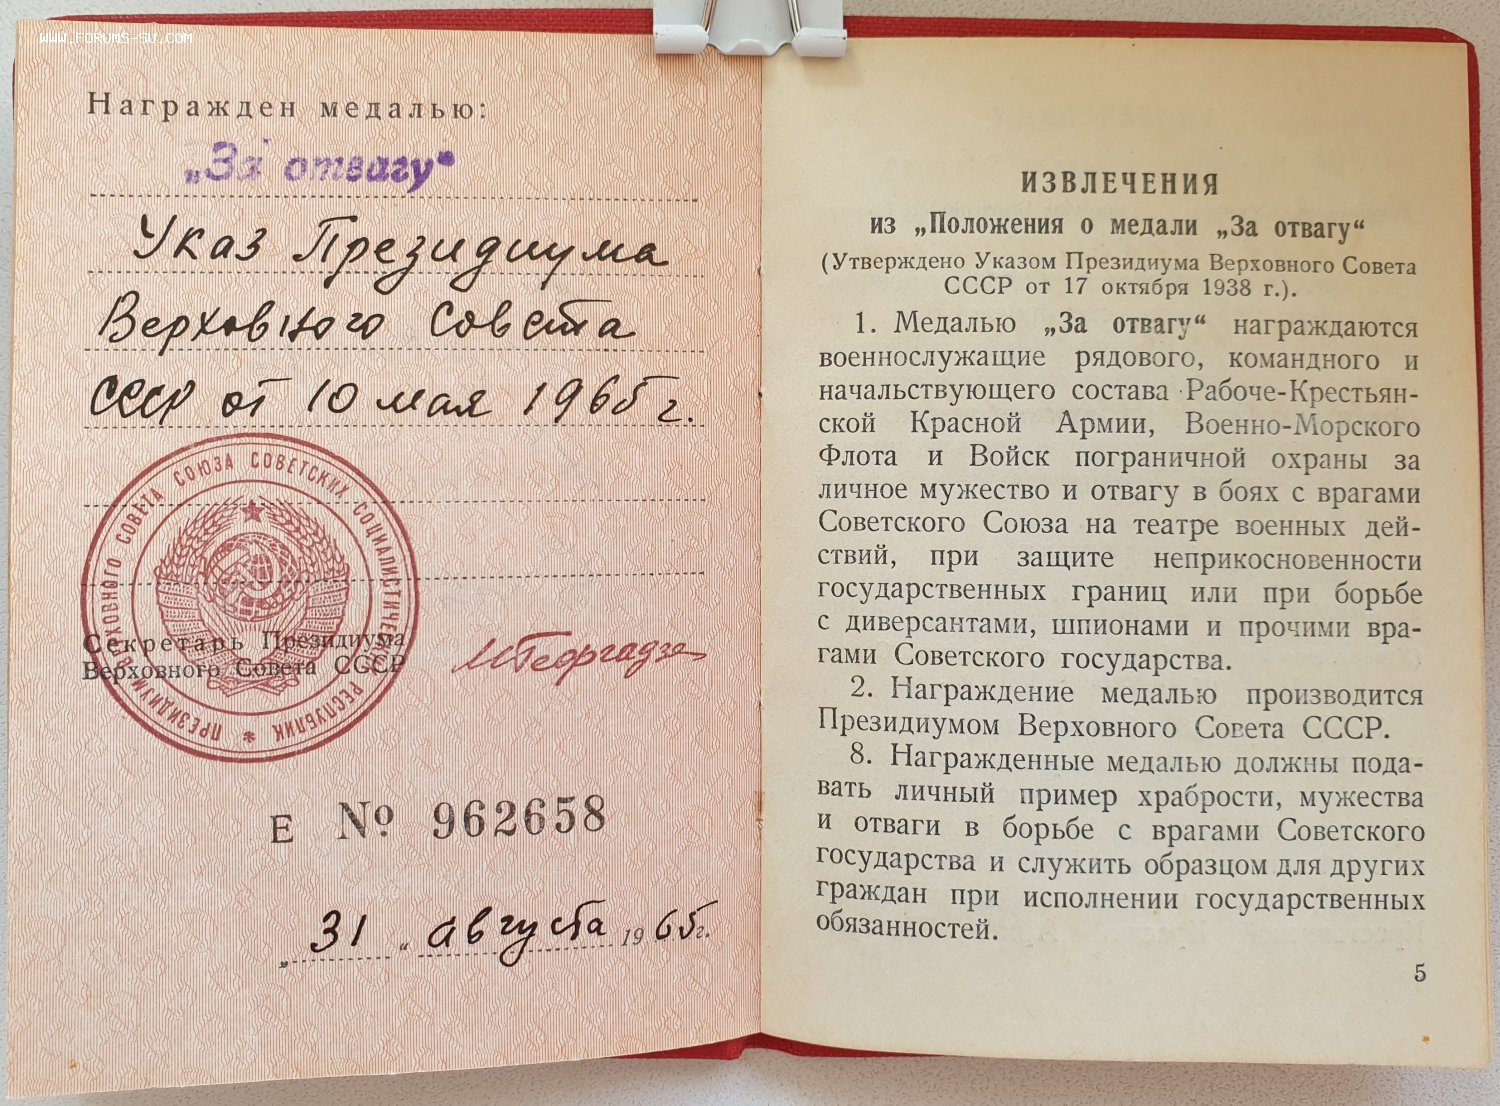 WWW.FORUMS-SU.COM
Награжден медалью:
„За отвагу“
Указ Президиума
Верховного Совета
СССР от 10 мая 1965 г.
ПРЕЗИДИУМ ВЕРХОВНОГО СОВЕТА СОЮЗА СОВЕТСКИХ СОЦИАЛИСТИЧЕСКИХ РЕСПУБЛИК *
Секретарь Президиума
Верховного Совета СССР
МГеоргадзе
Е № 962658
„31“ августа 1965г.
ИЗВЛЕЧЕНИЯ
из „Положения о медали „За отвагу“
(Утверждено Указом Президиума Верховного Совета
СССР от 17 октября 1938 г.).
1. Медалью „За отвагу“ награждаются
военнослужащие рядового, командного и
начальствующего состава Рабоче-Крестьян-
ской Красной Армии, Военно-Морского
Флота и Войск пограничной охраны за
личное мужество и отвагу в боях с врагами
Советского Союза на театре военных дей-
ствий, при защите неприкосновенности
государственных границ или при борьбе
с диверсантами, шпионами и прочими вра-
гами Советского государства.
2. Награждение медалью производится
Президиумом Верховного Совета СССР.
8. Награжденные медалью должны пода-
вать личный пример храбрости, мужества
и отваги в борьбе с врагами Советского
государства и служить образцом для других
граждан при исполнении государственных
обязанностей.
5